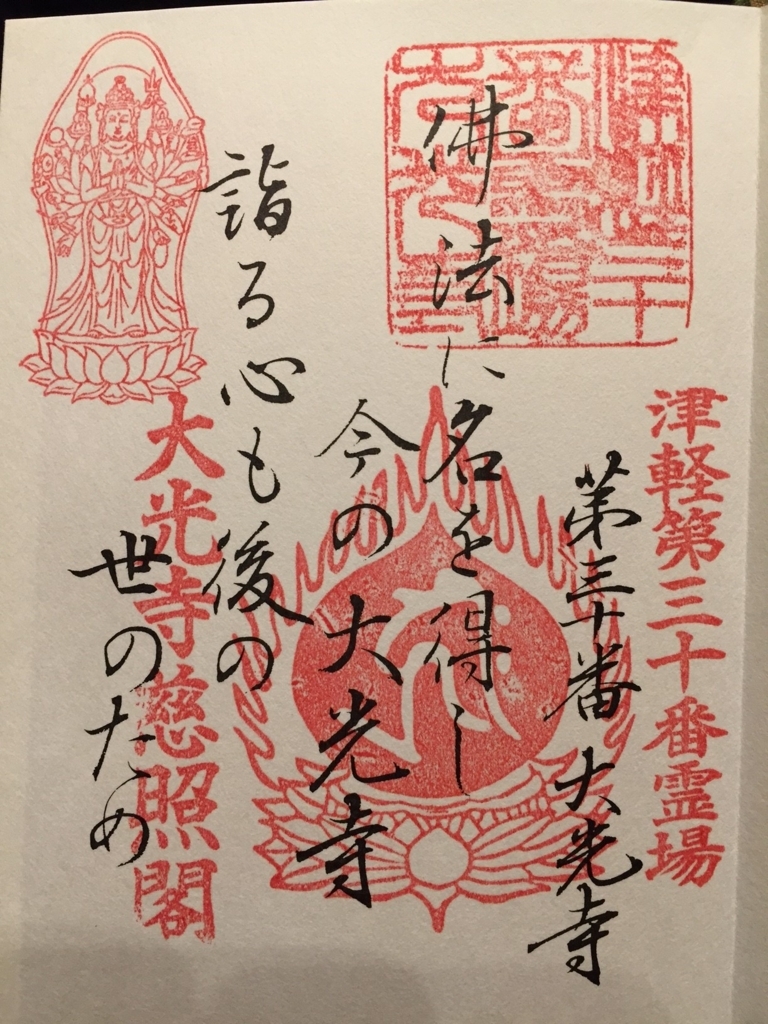 津軽第三十番霊場
第三十番 大光寺
佛法に名を得し
今の大光寺
詣る心も後の
世のため
大光寺慈照閣